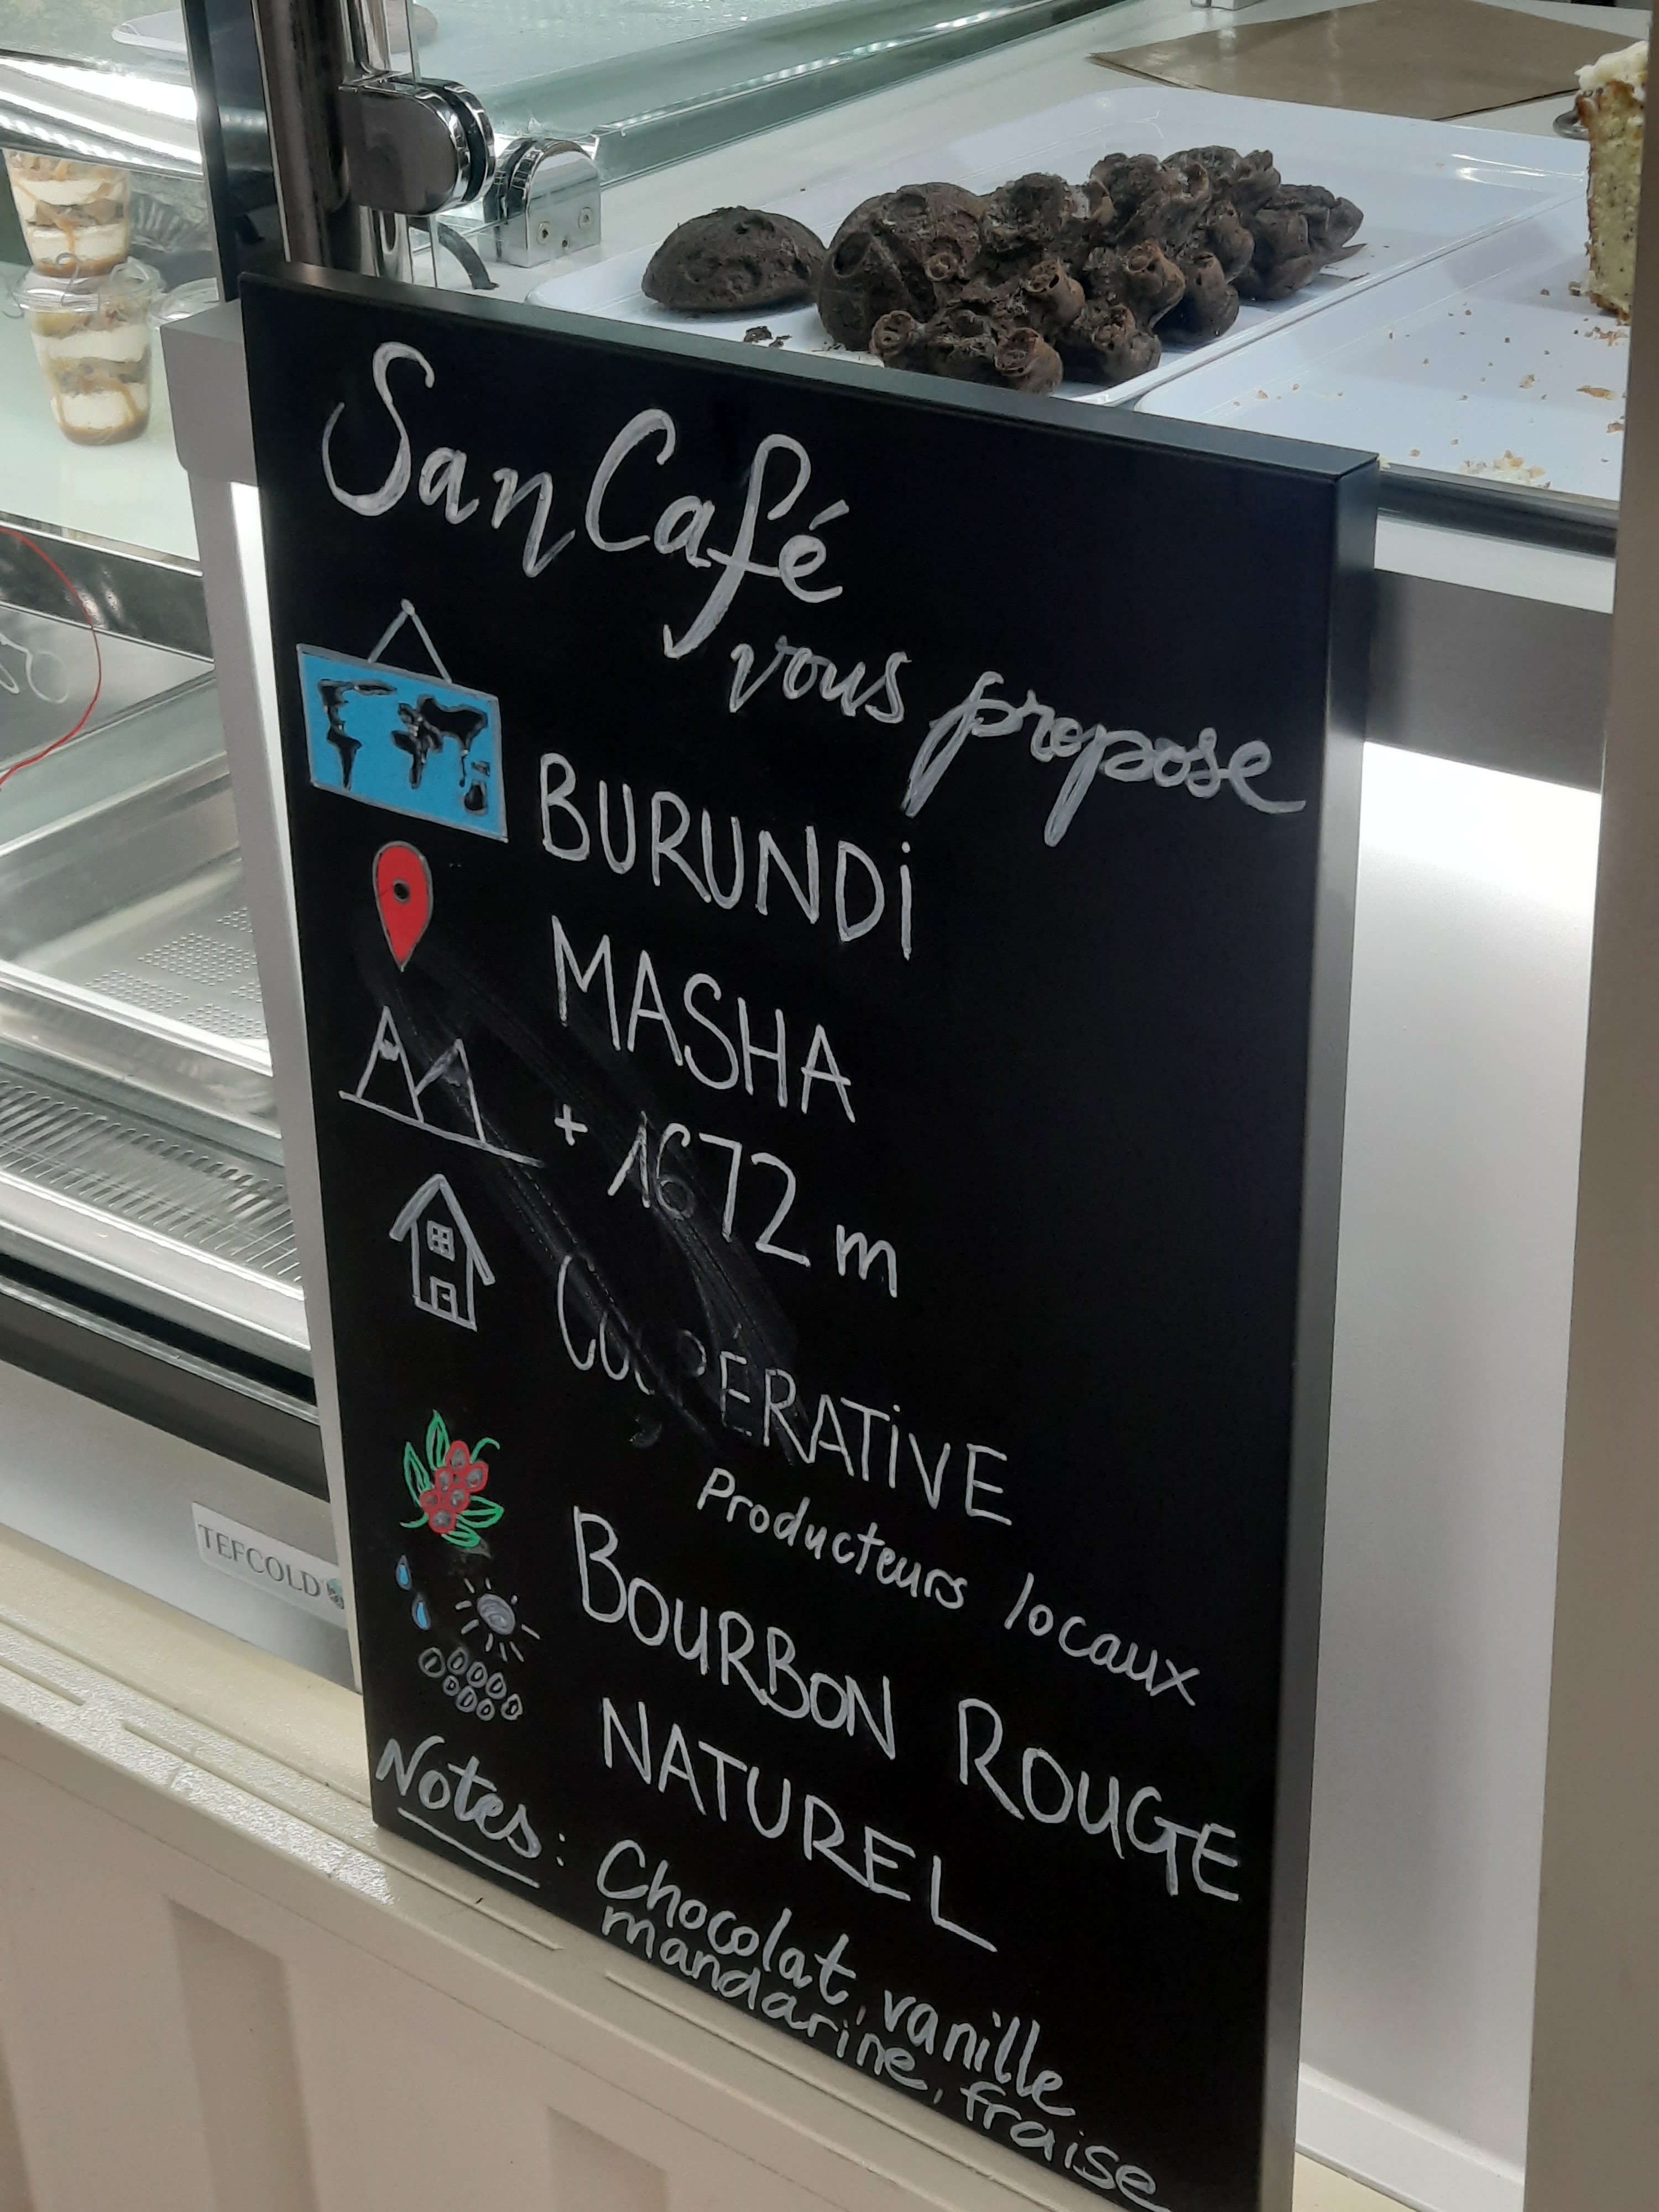 San Café
vous propose
BURUNDi
MASHA
+ 1672 m
COOPÉRATiVE
Producteurs locaux
BOURBON ROUGE
NATUREL
Notes : Chocolat, vanille
mandarine, fraise
TEFCOLD